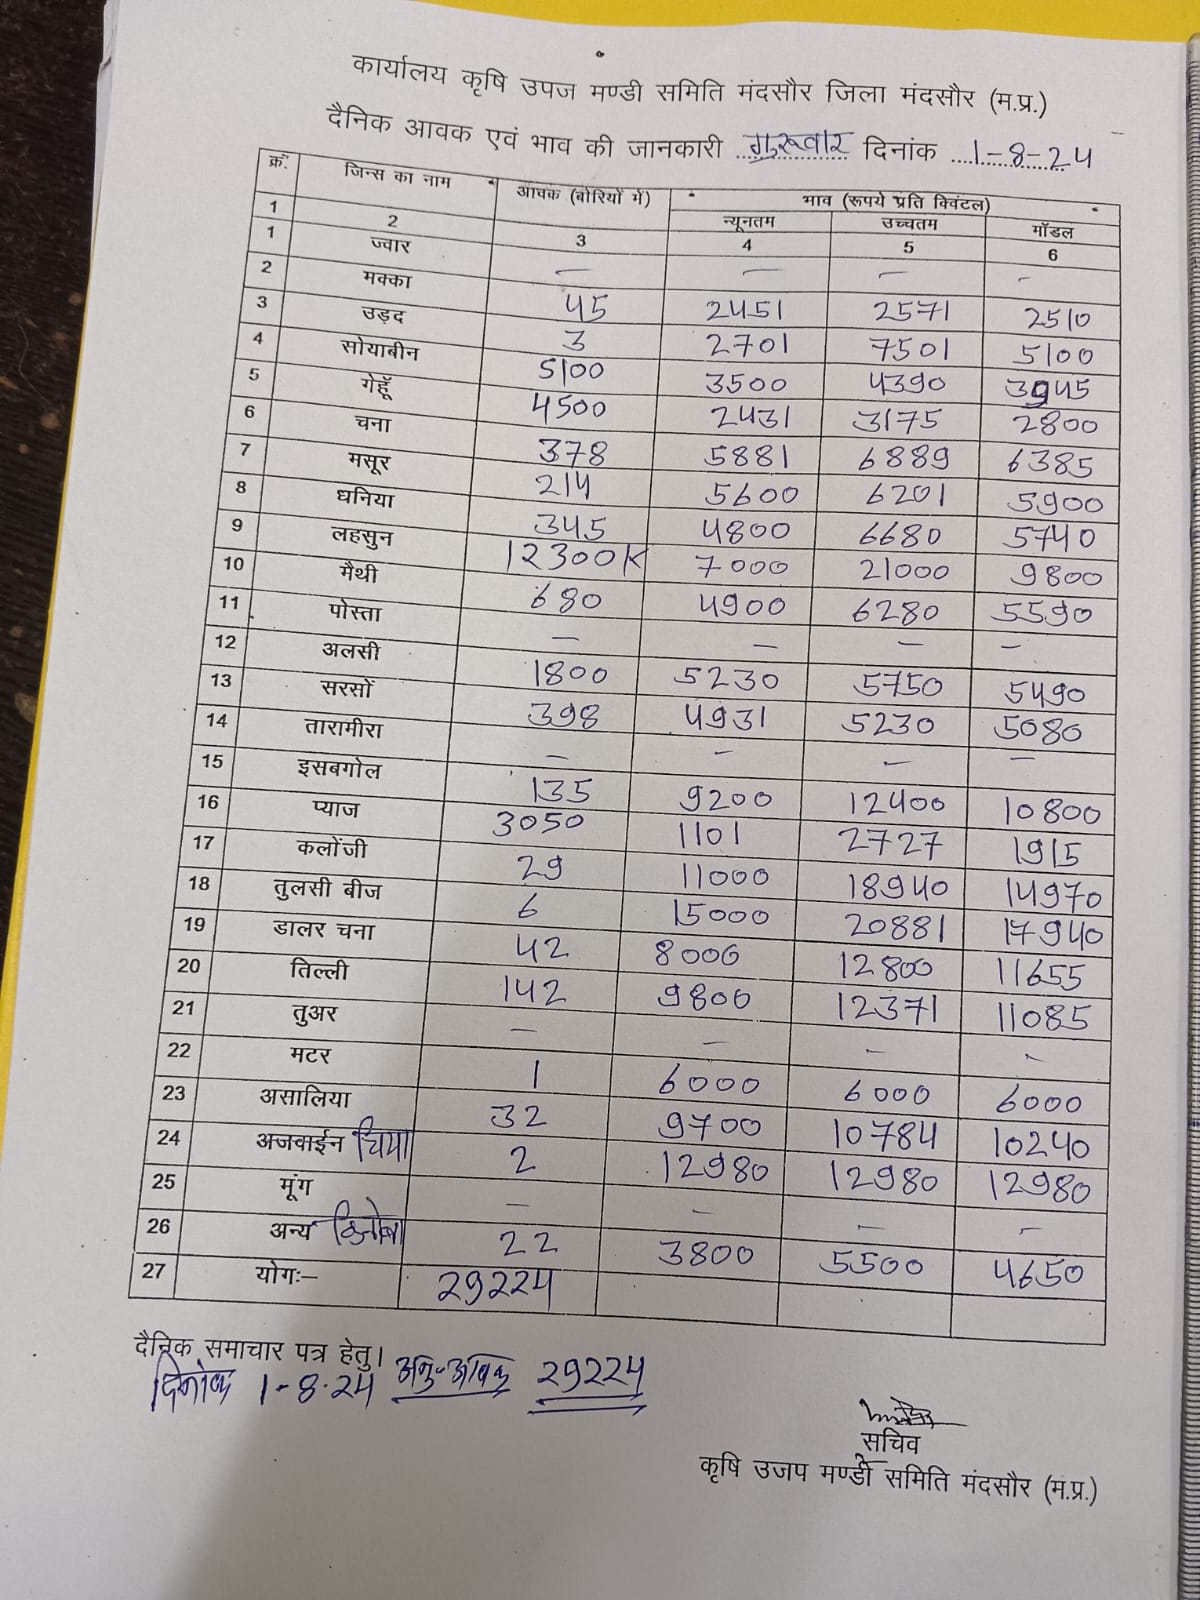 कार्यालय कृषि उपज मण्डी समिति मंदसौर जिला मंदसौर (म.प्र.)
दैनिक आवक एवं भाव की जानकारी गुरूवार दिनांक 1-8-24
क्रं. जिन्स का नाम आवक (बोरियों में) भाव (रूपये प्रति क्विंटल)
न्यूनतम उच्चतम मॉडल
1 2 3 4 5 6
1 ज्वार — — — -
2 मक्का 45 2451 2571 2510
3 उड़द 3 2701 7501 5100
4 सोयाबीन 5100 3500 4390 3945
5 गेहूँ 4500 2431 3175 2800
6 चना 378 5881 6889 6385
7 मसूर 214 5600 6201 5900
8 धनिया 345 4800 6680 5740
9 लहसुन 12300K 7000 21000 9800
10 मैथी 680 4900 6280 5590
11 पोस्ता — — — —
12 अलसी 1800 5230 5750 5490
13 सरसों 398 4931 5230 5080
14 तारामीरा — — — —
15 इसबगोल 135 9200 12400 10800
16 प्याज 3050 1101 2727 1915
17 कलोंजी 29 11000 18940 14970
18 तुलसी बीज 6 15000 20881 17940
19 डालर चना 42 8000 12800 11655
20 तिल्ली 142 9800 12371 11085
21 तुअर — — — -
22 मटर 1 6000 6000 6000
23 असालिया 32 9700 10784 10240
24 अजवाईन चिया 2 12980 12980 12980
25 मूंग — — — -
26 अन्य 22 3800 5500 4650
27 योगः— 29224
दैनिक समाचार पत्र हेतु।
दिनांक 1-8-24 अनु-आवक 29224
सचिव
कृषि उजप मण्डी समिति मंदसौर (म.प्र.)